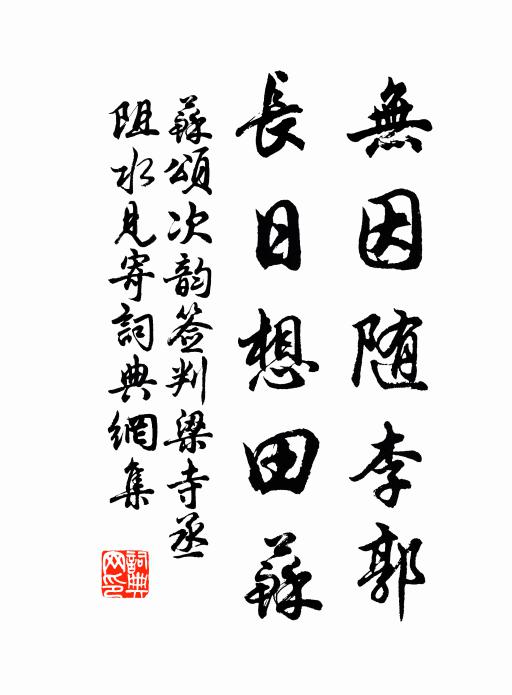 無因随李郭
長日想田蘇
蘇頌次韵签判梁寺丞
阻水見寄詞典網集
詞典网印